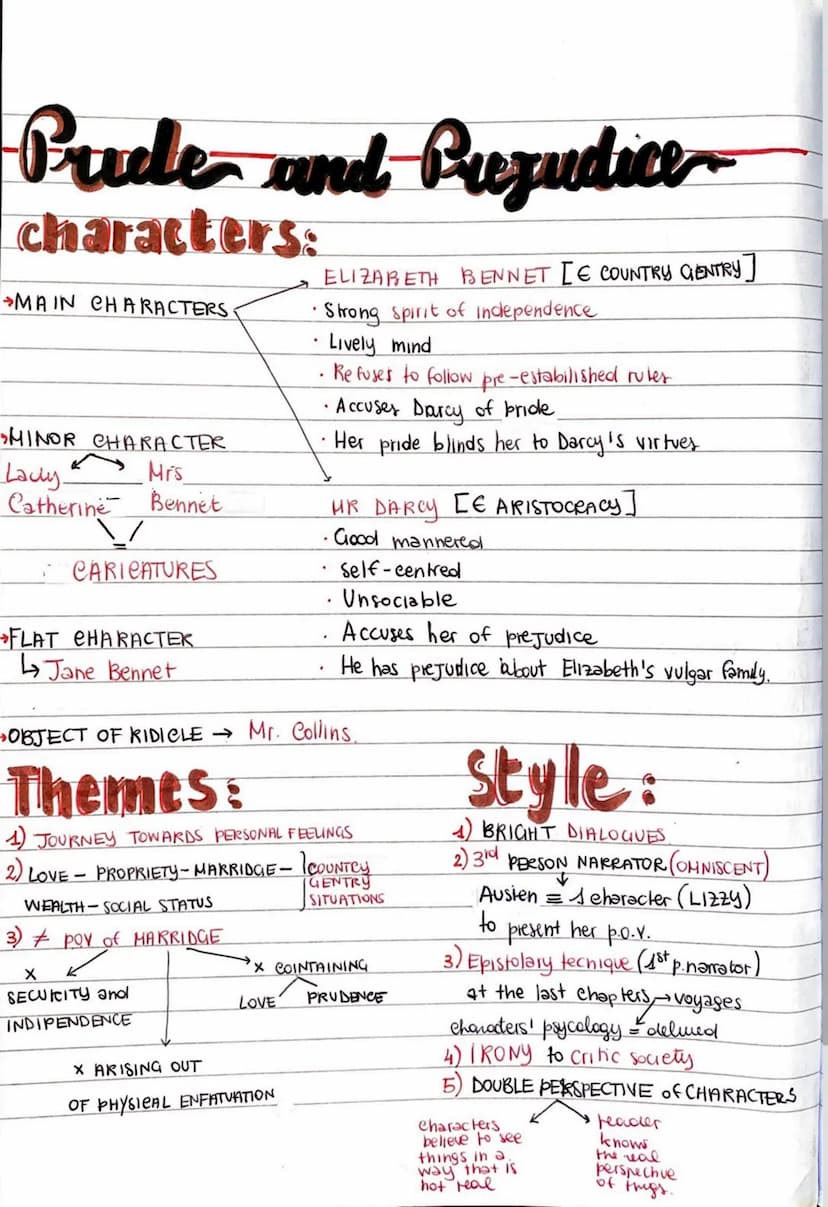 Pride and Prejudice
characters:
ELIZABETH BENNET [∈ COUNTRY GENTRY]
→MAIN CHARACTERS
· Strong spirit of independence
· Lively mind
· Refuses to follow pre-estabilished rules
· Accuses Darcy of pride
· Her pride blinds her to Darcy's virtues
→MINOR CHARACTER
Lady Mrs
Catherine Bennet
=
CARICATURES
MR DARCY [∈ ARISTOCRACY]
· Good mannered
· Self-centred
· Unsociable
· Accuses her of prejudice
· He has prejudice about Elizabeth's vulgar family.
→FLAT CHARACTER
↳ Jane Bennet
→OBJECT OF RIDICLE → Mr. Collins.
Themes:
1) JOURNEY TOWARDS PERSONAL FEELINGS
2) LOVE – PROPRIETY – MARRIDGE –
WEALTH – SOCIAL STATUS
COUNTRY
GENTRY
SITUATIONS
3) ≠ POV of MARRIDGE
x
SECURITY and
INDIPENDENCE
x COINTAINING
LOVE PRUDENCE
x ARISING OUT
OF PHYSICAL ENFATUATION
Style:
1) BRIGHT DIALOGUES
2) 3rd PERSON NARRATOR (OMNISCENT)
Austen ≡ 1 character (LIZZY)
to present her p.o.v.
3) Epistolary tecnique (1st p. narrator)
at the last chapters → voyages
characters' psycology = delined
4) IRONY to critic society
5) DOUBLE PERSPECTIVE of CHARACTERS
characters
believe to see
things in a
way that is
not real
reader
knows
the real
perspective
of things.